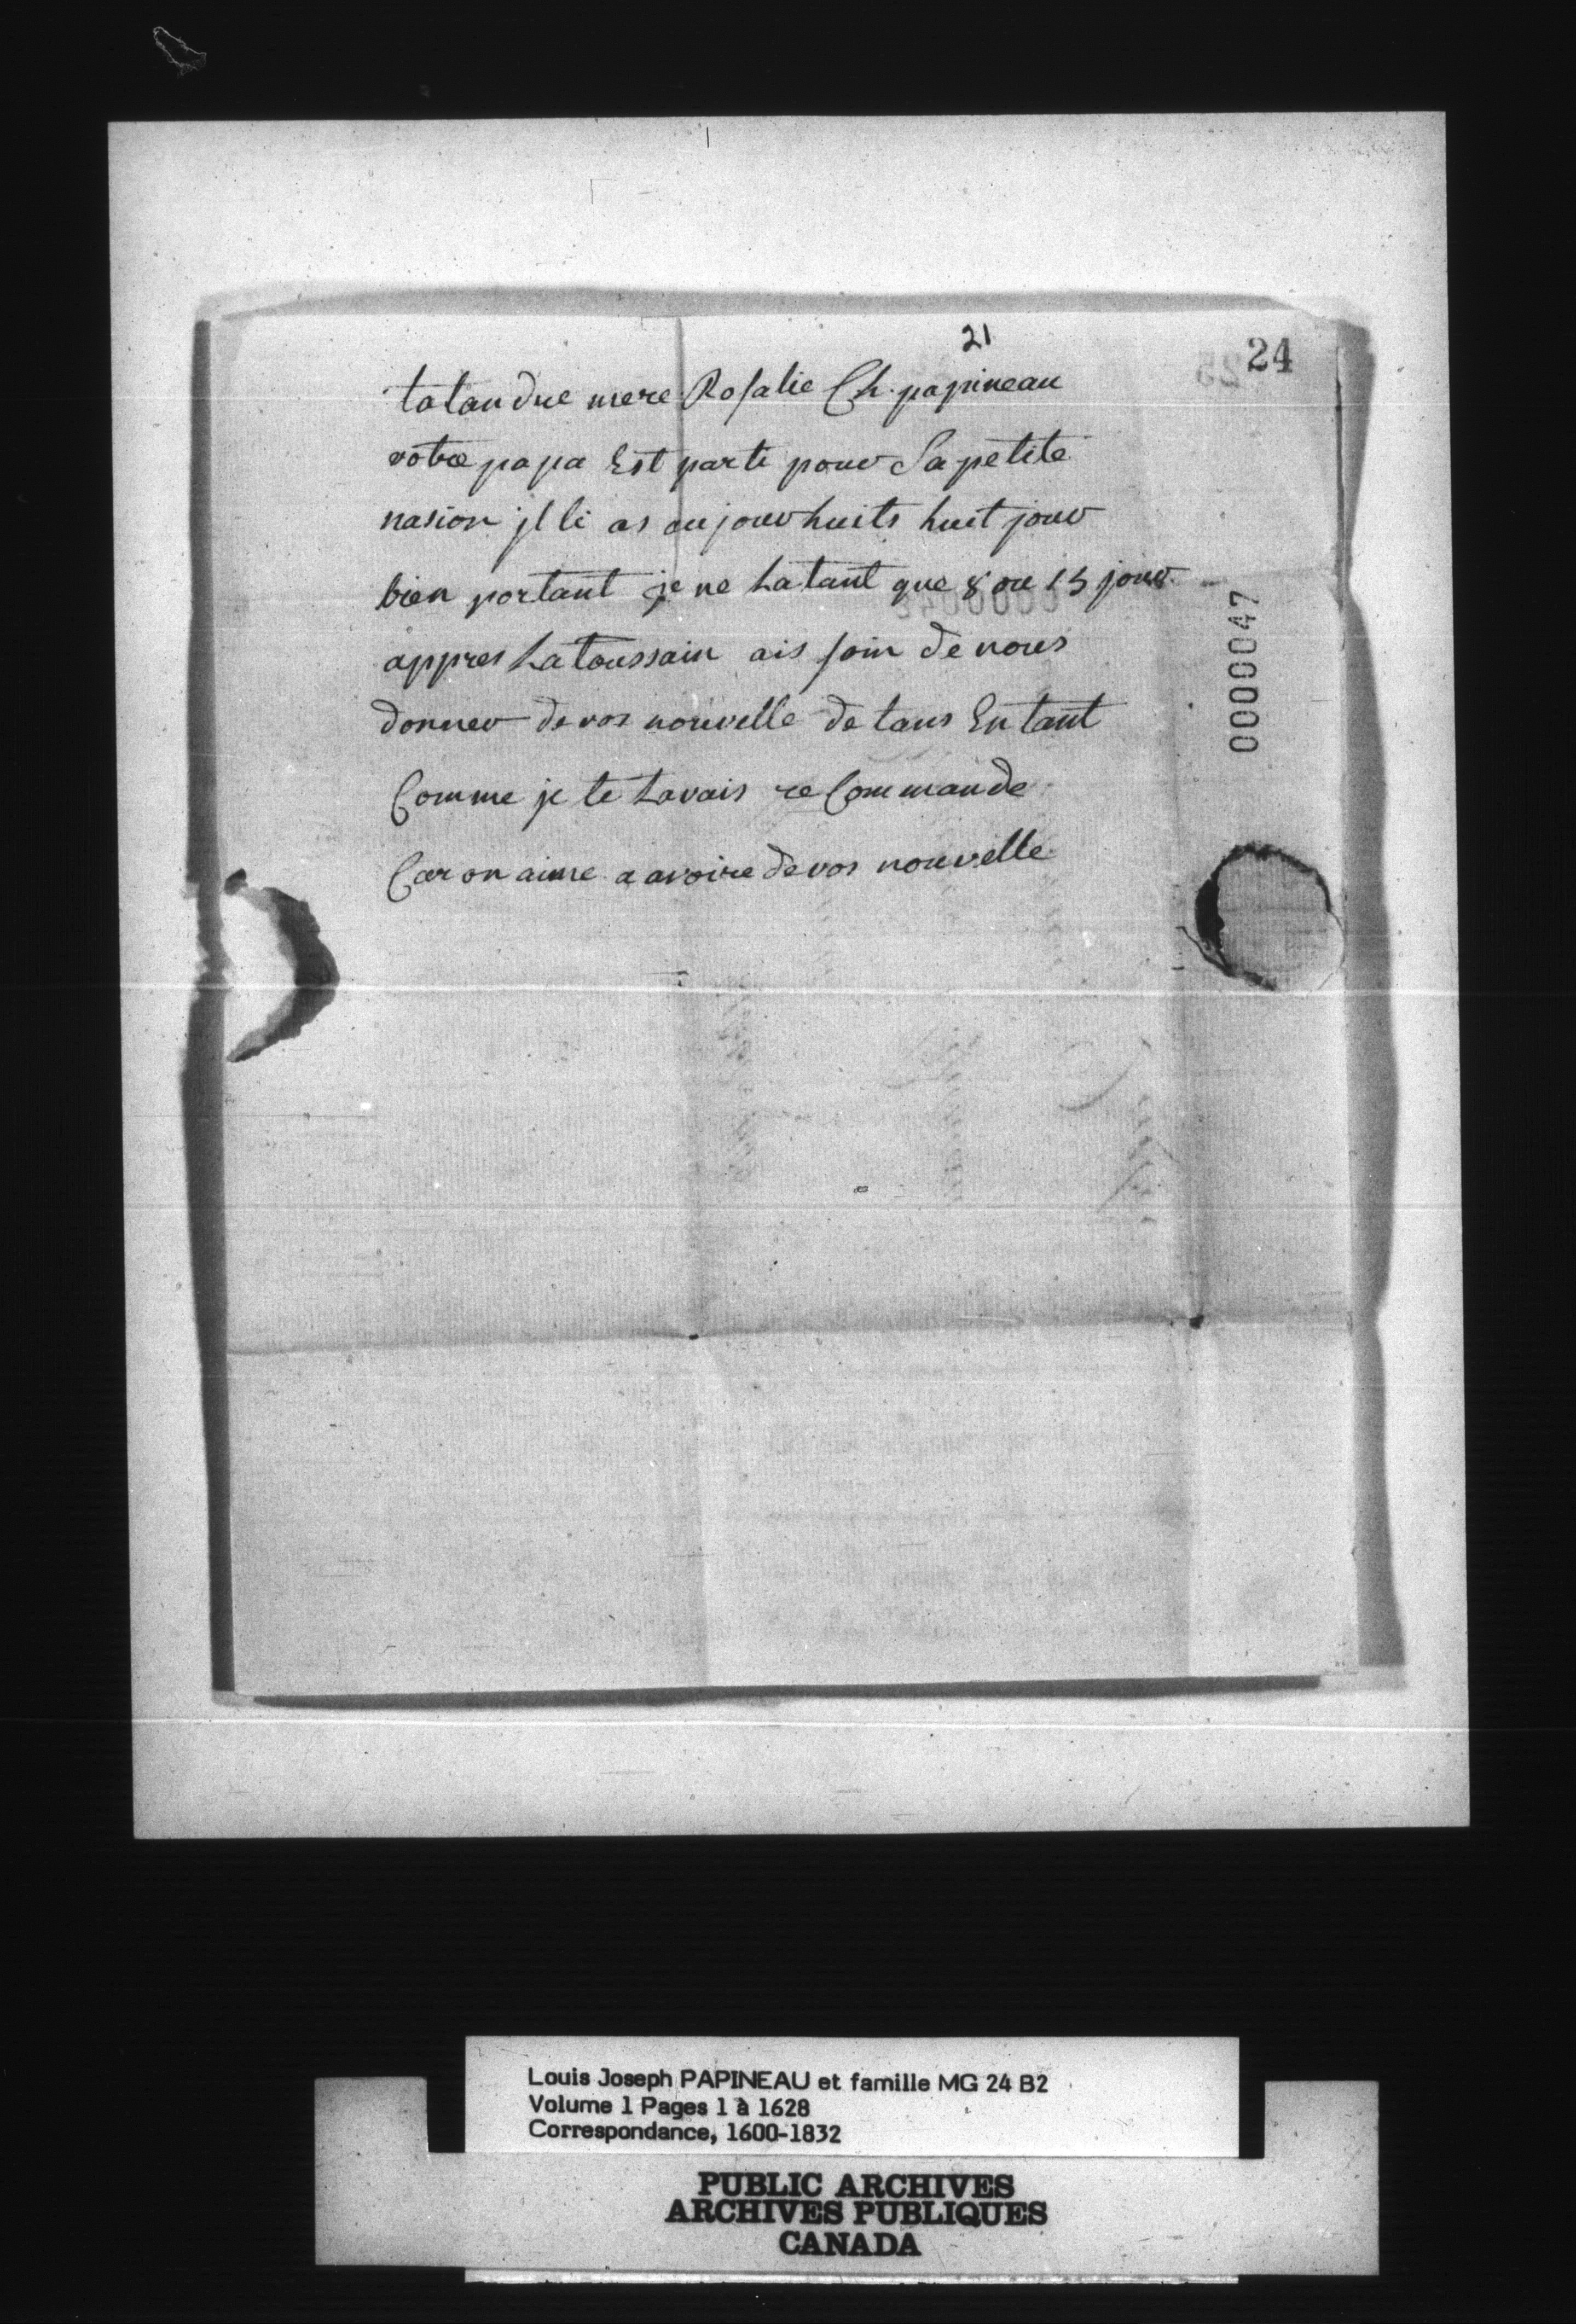 21
24
ta tandre mere Rosalie Ch. papineau
votre papa Est parti pour La petite
nasion jl li as aujourhuits huit jour
bien portant je ne Latant que 8 ou 15 jour
appres La toussain ais soin de nous
donner de vos nouvelle de tans En tant
Comme je te Lavais re Commande
Car on aime a avoire de vos nouvelle
0000047
Louis Joseph PAPINEAU et famille MG 24 B2
Volume 1 Pages 1 à 1628
Correspondance, 1600-1832
PUBLIC ARCHIVES
ARCHIVES PUBLIQUES
CANADA